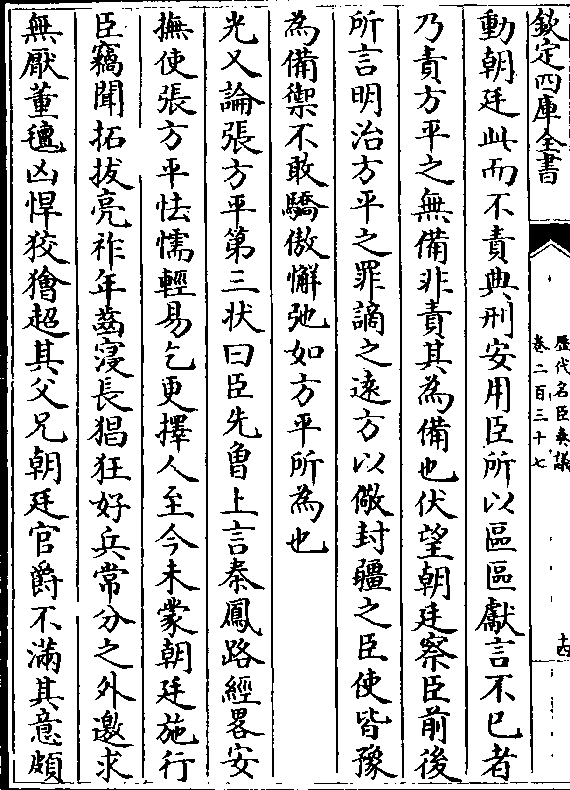 欽定四庫全書
歷代名臣奏議
卷二百三十七
十四
動朝廷此而不責典刑安用臣所以區區獻言不已者
乃責方平之無備非責其為備也伏望朝廷察臣前後
所言明治方平之罪謫之遠方以儆封疆之臣使皆豫
為備禦不敢驕傲懈弛如方平所為也
光又論張方平第三狀曰臣先曾上言秦鳳路經畧安
撫使張方平怯懦輕易乞更擇人至今未蒙朝廷施行
臣竊聞拓拔亮祚年齒寖長猖狂好兵常分之外邀求
無厭董氊凶悍狡獪超其父兄朝廷官爵不滿其意頗